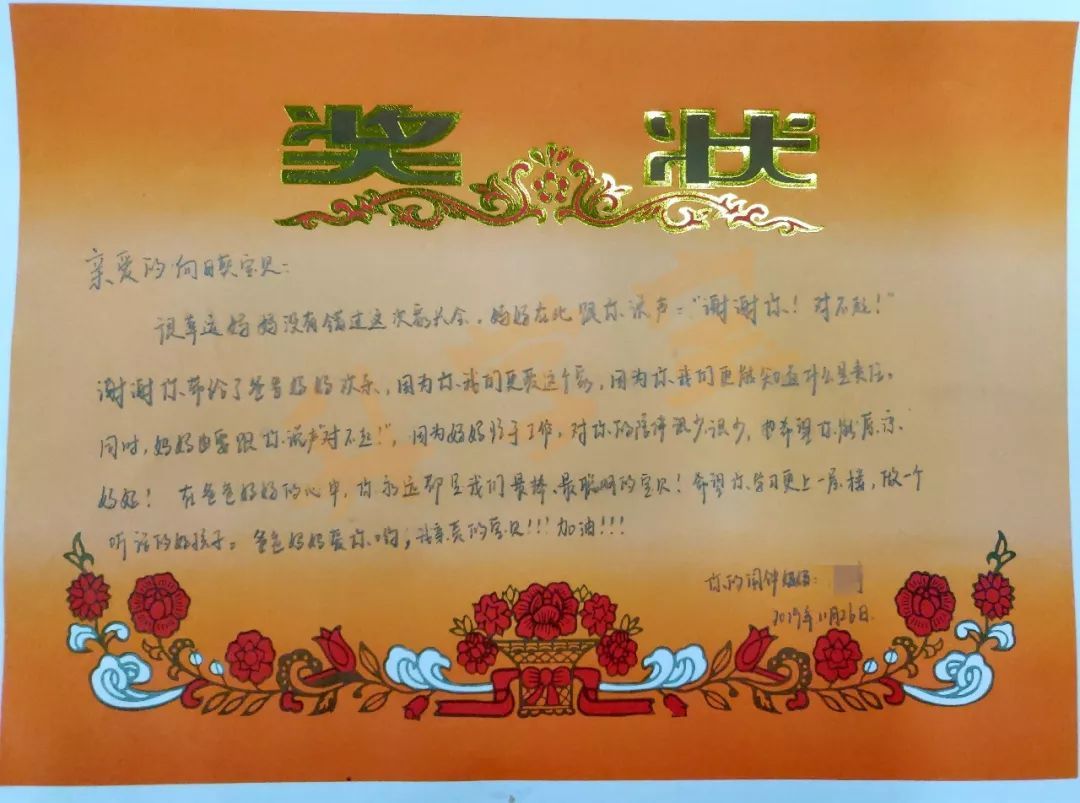 奖状
亲爱的向日葵宝贝:
很幸运妈妈没有错过这次家长会。妈妈在此跟你说声:"谢谢你!对不起!"
谢谢你带给了爸爸妈妈欢乐,因为你我们更爱这个家,因为你我们更能知道什么是责任。
同时,妈妈也要跟你说声"对不起!",因为妈妈忙于工作,对你的陪伴很少很少,也希望你能原谅
妈妈!在爸爸妈妈的心中,你永远都是我们最棒、最聪明的宝贝!希望你学习更上一层楼,做一个
听话的好孩子。爸爸妈妈爱你哟,我亲爱的宝贝!!!加油!!!
你的闹钟妈妈:
2019年11月26日.